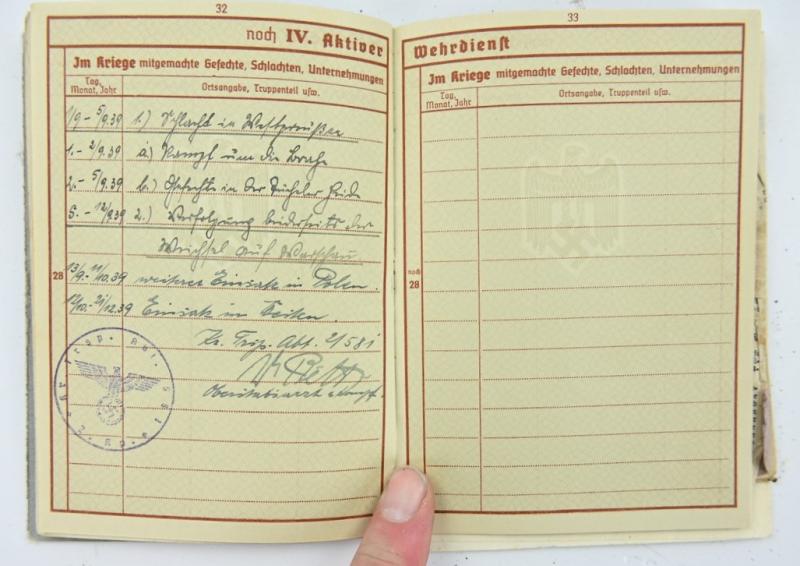 32
noch IV. Aktiver
Im Kriege mitgemachte Gefechte, Schlachten, Unternehmungen
Tag, Monat, Jahr
Ortsangabe, Truppenteil usw.
1/9 - 5/9.39 1.) Schlacht in Westpreußen
1. - 2/9.39 a.) Kampf um die Brahe
2. - 5/9.39 b.) Gefechte in der Tucheler Heide
5. - 12/9.39 2.) Verfolgung beiderseits der
Weichsel auf Warschau.
28
13/9. - 11/10.39 weiterer Einsatz in Polen.
12/10. - 21/12.39 Einsatz im
Kr. Trsp. Abt. 2/581
Oberstabsarzt
33
Wehrdienst
Im Kriege mitgemachte Gefechte, Schlachten, Unternehmungen
Tag, Monat, Jahr
Ortsangabe, Truppenteil usw.
noch
28